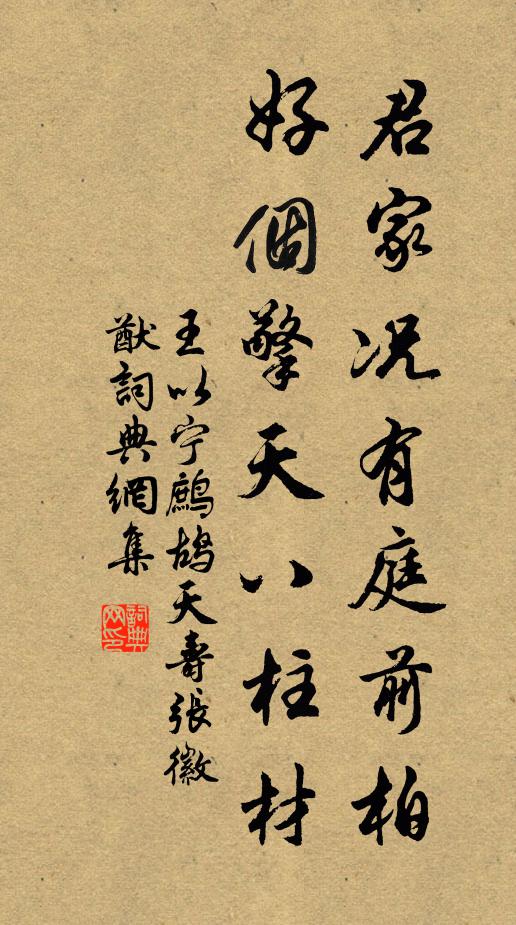 君家况有庭前柏
好個擎天八柱材
王以宁鷓鴣天壽張徽
猷詞典網集
詞典网印